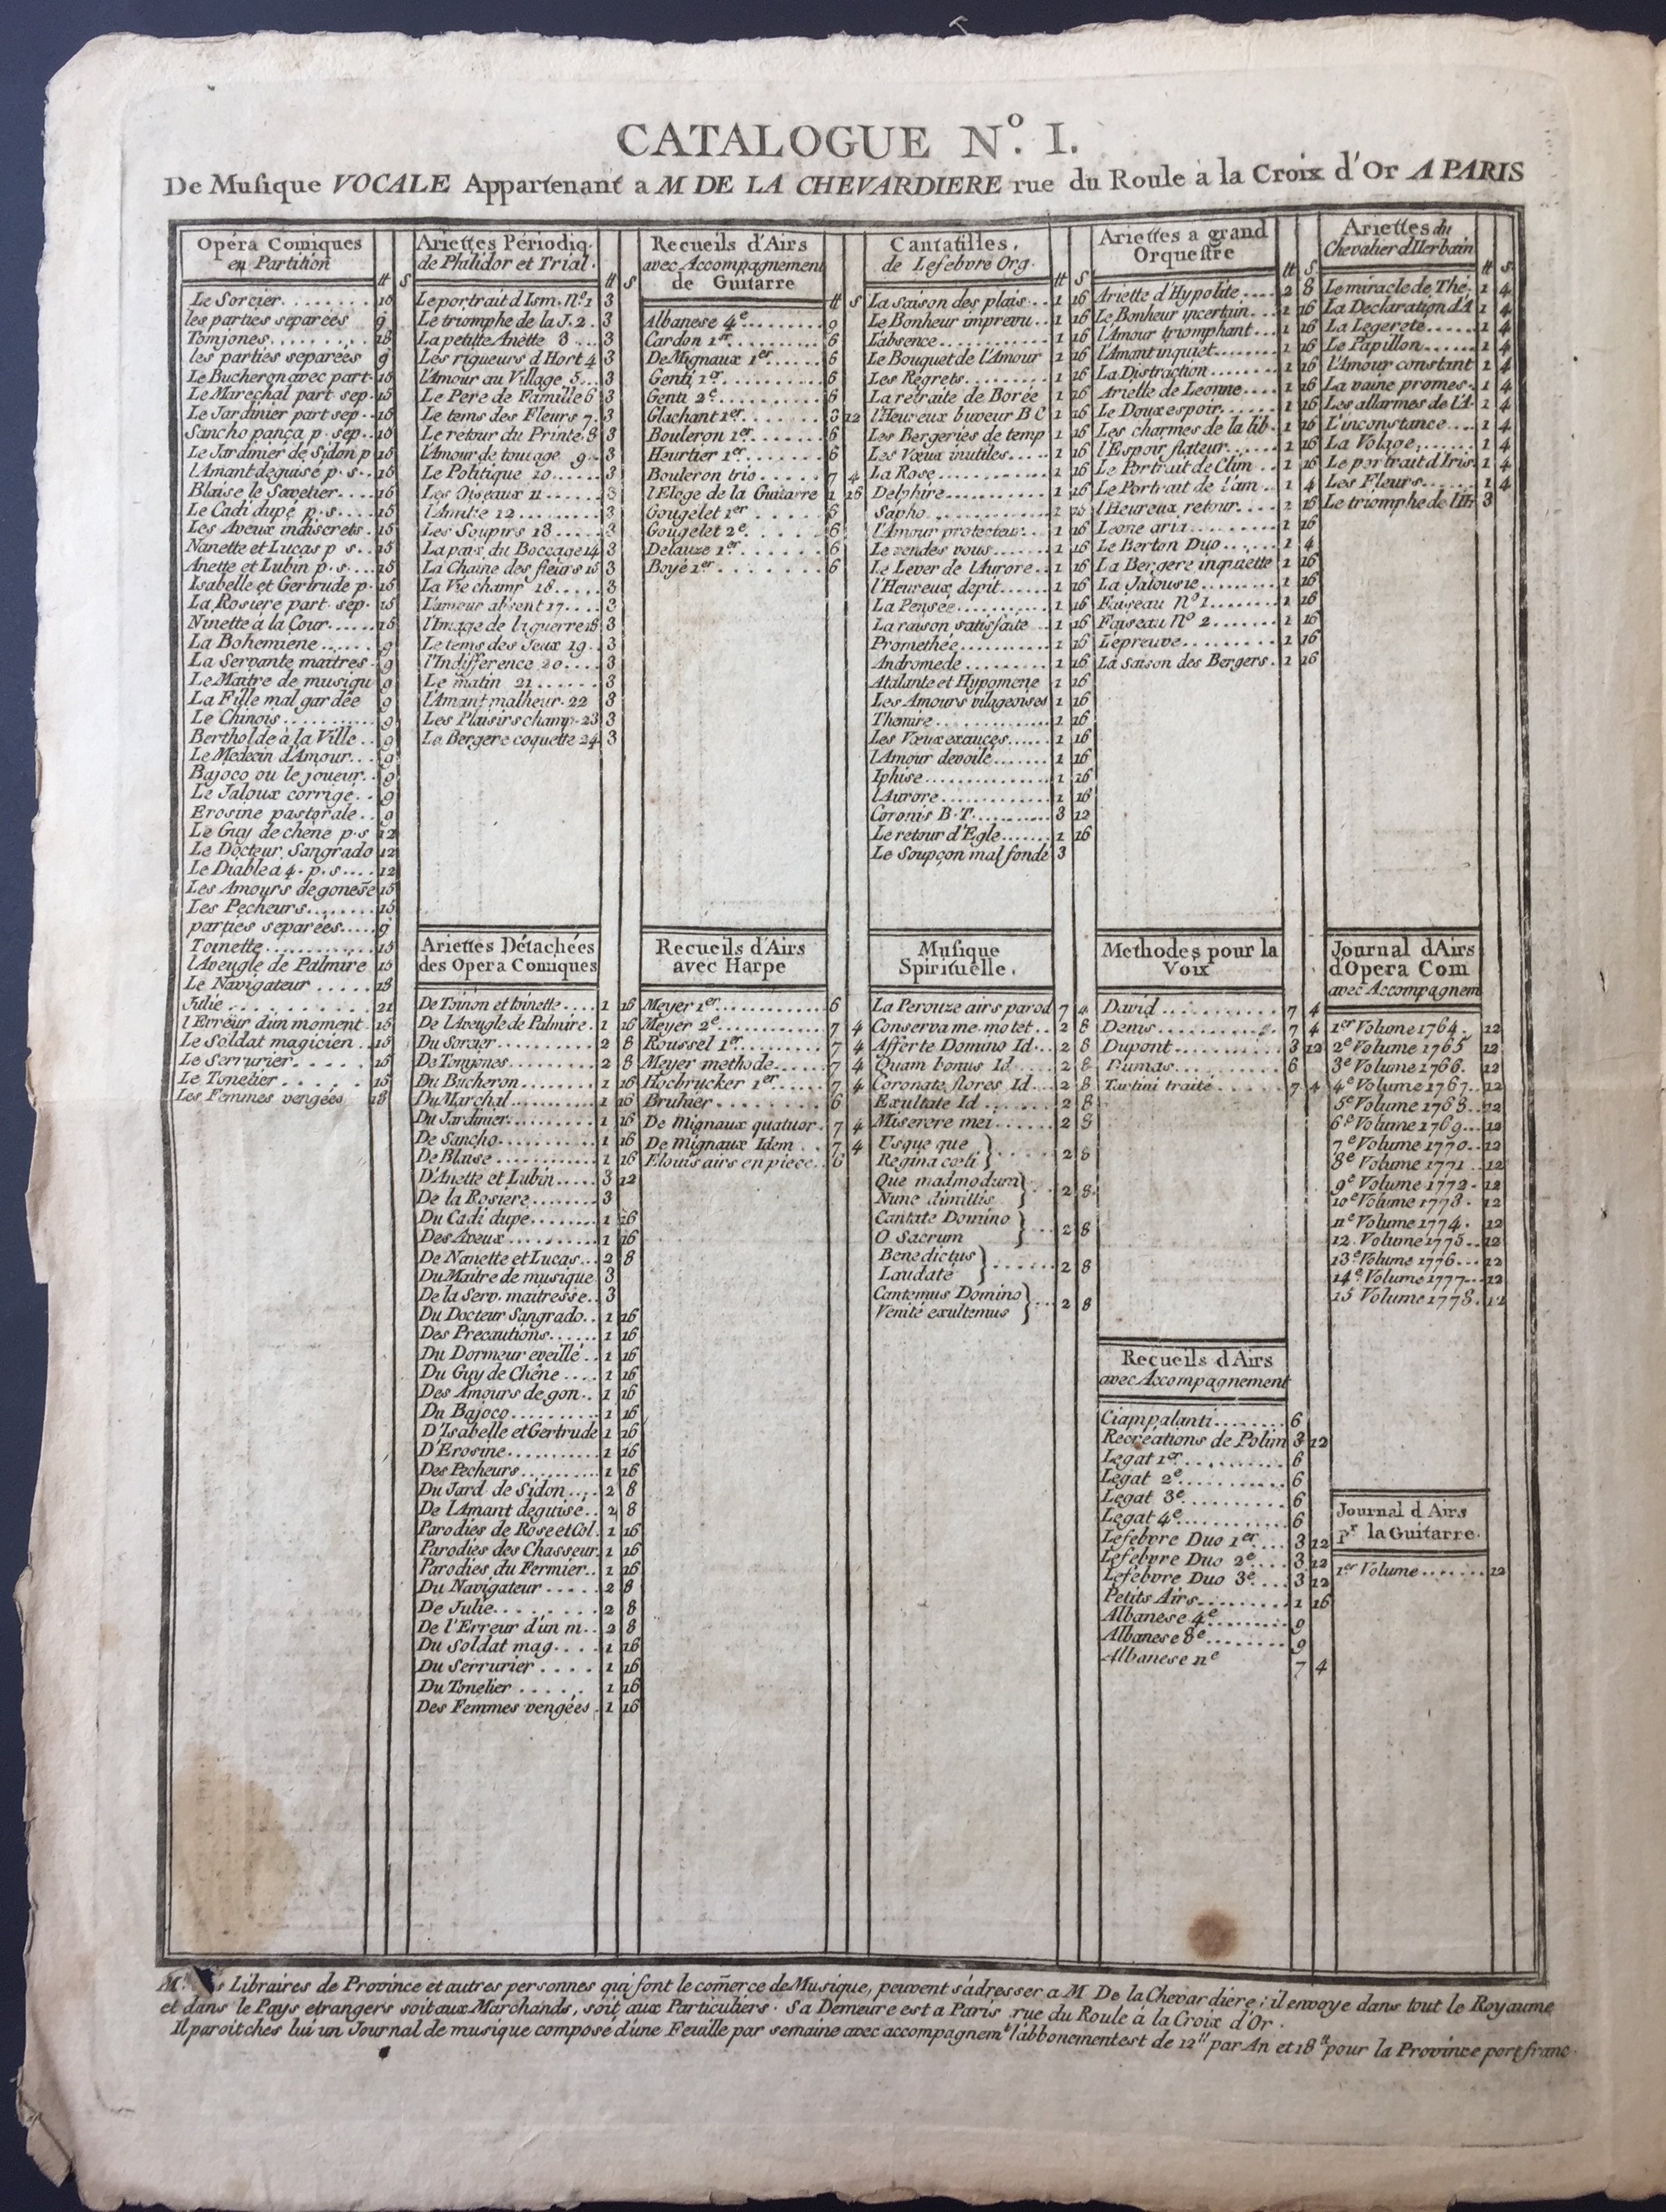 CATALOGUE N.º I.
De Musique VOCALE Appartenant a M DE LA CHEVARDIERE rue du Roule à la Croix d'Or A PARIS
Opéra Comiques
en Partition
₶ s
Le Sorcier........18
les parties separées 9
Tomjones.........18
les parties separées 9
Le Bucheron avec part. 18
Le Marechal part sep. 15
Le Jardinier part sep.. 15
Sancho pança p. sep.. 18
Le Jardinier de Sidon p 18
l'Amant deguisé p. s.. 15
Blaise le Savetier.... 15
Le Cadi dupé p. s.... 15
Les Aveux indiscrets. 15
Nanette et Lucas p s.. 15
Anette et Lubin p. s... 15
Isabelle et Gertrude p. 15
La Rosiere part. sep. 15
Ninette à la Cour..... 15
La Bohemiene...... 9
La Servante maitres. 9
Le Maitre de musiqu 9
La Fille mal gardée 9
Le Chinois.......... 9
Bertholde à la Ville.. 9
Le Medecin d'Amour... 9
Bajoco ou le joueur.. 9
Le Jaloux corrigé.. 9
Erosine pastorale.. 9
Le Guy de chêne p. s 12
Le Docteur Sangrado 12
Le Diable à 4. p. s.... 12
Les Amours de gonesse 15
Les Pecheurs....... 15
parties separées..... 9
Toinette........... 15
l'Aveugle de Palmire 15
Le Navigateur..... 18
Julie............ 21
l'Erreur d'un moment. 15
Le Soldat magicien.. 15
Le Serrurier...... 15
Le Tonelier...... 15
Les Femmes vengées 18
Ariettes Périodiq.
de Philidor et Trial.
₶ s
Le portrait d'Ism. Nº 1 3
Le triomphe de la J. 2. 3
La petitte Anette 3... 3
Les rigueurs d'Hort 4 3
l'Amour au Village 5.. 3
Le Pere de Famille 6 3
Le tems des Fleurs 7. 3
Le retour du Printe. 8 3
l'Amour de tout age 9. 3
Le Politique 10..... 3
Les Oiseaux 11..... 3
l'Amitié 12......... 3
Les Soupirs 13..... 3
La pais. du Boccage 14 3
La Chaine des fleurs 15 3
La Vie champ 16..... 3
L'amour absent 17.... 3
l'Image de la guerre 18 3
Le tems des Jeux 19.. 3
l'Indifference 20.... 3
Le matin 21....... 3
l'Amant malheur. 22 3
Les Plaisirs champ. 23 3
La Bergere coquette 24 3
Ariettes Détachées
des Opera Comiques
De Toinon et toinette.... 1 16
De l'Aveugle de Palmire. 1 16
Du Sorcier........... 2 8
De Tomjones.......... 2 8
Du Bucheron......... 1 16
Du Marchal.......... 1 16
Du Jardinier......... 1 16
De Sancho.......... 1 16
De Blaise........... 1 16
D'Anette et Lubin..... 3 12
De la Rosiere........ 3
Du Cadi dupé....... 1 16
Des Aveux.......... 1 16
De Nanette et Lucas... 2 8
Du Maitre de musique 3
De la Serv. maitresse.. 3
Du Docteur Sangrado.. 1 16
Des Precautions...... 1 16
Du Dormeur eveillé.. 1 16
Du Guy de Chêne.... 1 16
Des Amours de gon.. 1 16
Du Bajoco.......... 1 16
D'Isabelle et Gertrude 1 16
D'Erosine........... 1 16
Des Pecheurs......... 1 16
Du Jard. de Sidon.... 2 8
De l'Amant deguisé.. 2 8
Parodies de Rose et Col. 1 16
Parodies des Chasseur. 1 16
Parodies du Fermier.. 1 16
Du Navigateur..... 2 8
De Julie.......... 2 8
De l'Erreur d'un m.. 2 8
Du Soldat mag.... 1 16
Du Serrurier.... 1 16
Du Tonelier...... 1 16
Des Femmes vengées. 1 16
Recueils d'Airs
avec Accompagnement
de Guitarre
₶ s
Albanese 4e........ 9
Cardon 1er......... 6
De Mignaux 1er..... 6
Genti 1er.......... 6
Genti 2e.......... 6
Glachant 1er...... 3 12
Bouleron 1er...... 6
Heurtier 1er...... 6
Bouleron trio..... 7 4
l'Eloge de la Guitarre 1 16
Gougelet 1er..... 6
Gougelet 2e..... 6
Delauze 1er..... 6
Boyé 1er........ 6
Recueils d'Airs
avec Harpe
Meyer 1er.......... 6
Meyer 2e......... 7 4
Roussel 1er........ 7 4
Meyer methode..... 7 4
Hocbrucker 1er..... 7 4
Bruhier......... 6
De Mignaux quatuor. 7 4
De Mignaux Idem.. 7 4
Elouis airs en piece.. 6
Cantatilles,
de Lefebvre Org.
₶ s
La saison des plais.. 1 16
Le Bonheur imprevu.. 1 16
L'absence........... 1 16
Le Bouquet de l'Amour 1 16
Les Regrets......... 1 16
La retraite de Borée 1 16
l'Heureux buveur B C 1 16
Les Bergeries de temp 1 16
Les Vœux inutiles..... 1 16
La Rose........... 1 16
Delphire........... 1 16
Sapho............ 1 16
l'Amour protecteur.. 1 16
Le vendes vous...... 1 16
Le Lever de l'Aurore.. 1 16
l'Heureux depit..... 1 16
La Pensée.......... 1 16
La raison satisfaite 1 16
Promethée.......... 1 16
Andromede......... 1 16
Atalante et Hypomene 1 16
Les Amours vilageoises 1 16
Themire........... 1 16
Les Vœux exaucés..... 1 16
l'Amour devoilé...... 1 16
Iphise............. 1 16
l'Aurore........... 1 16
Coronis B. T......... 3 12
Le retour d'Eglé...... 1 16
Le Soupçon mal fondé 3
Musique
Spirituelle.
La Perouze airs parod 7 4
Conserva me motet.. 2 8
Afferte Domino Id... 2 8
Quam bonus Id.... 2 8
Coronate flores Id... 2 8
Exultate Id...... 2 8
Miserere mei...... 2 8
Usque quo
Regina cœli } ..... 2 8
Que madmodum
Nunc dimittis } .. 2 8
Cantate Domino
O Sacrum } ... 2 8
Benedictus
Laudate } ...... 2 8
Cantemus Domino
Venite exultemus } ... 2 8
Ariettes a grand
Orquestre
₶ s
Ariette d'Hypolite.... 2 8
Le Bonheur incertain... 1 16
l'Amour triomphant... 1 16
l'Amant inquiet....... 1 16
La Distraction....... 1 16
Ariette de Leonne.... 1 16
Le Doux espoir...... 1 16
Les charmes de la lib. 1 16
l'Espoir flateur..... 1 16
Le Portrait de Clim.. 1 16
Le Portrait de l'am.. 1 4
l'Heureux retour.... 1 16
Leone aria....... 1 16
Le Berton Duo..... 1 4
La Bergere inquiette 1 16
La Jalousie........ 1 16
Faiseau Nº 1....... 1 16
Faiseau Nº 2...... 1 16
L'epreuve.......... 1 16
La saison des Bergers. 1 16
Methodes pour la
Voix
David.......... 7 4
Denis.......... 7 4
Dupont......... 3 12
Dumas......... 6
Tartini traité...... 7 4
Recueils d'Airs
avec Accompagnement
Ciampalanti........ 6
Recréations de Polim 3 12
Legat 1er......... 6
Legat 2e.......... 6
Legat 3e.......... 6
Legat 4e.......... 6
Lefebvre Duo 1er... 3 12
Lefebvre Duo 2e... 3 12
Lefebvre Duo 3e... 3 12
Petits Airs......... 1 16
Albanese 4e........ 9
Albanese 8e........ 9
Albanese 11e 7 4
Ariettes du
Chevalier d'Herbain
₶ s
Le miracle de Thé. 1 4
La Declaration d'A 1 4
La Legereté...... 1 4
Le Papillon...... 1 4
l'Amour constant 1 4
La vaine promes. 1 4
Les allarmes de l'A. 1 4
L'inconstance.... 1 4
La Volage....... 1 4
Le portrait d'Iris 1 4
Les Fleurs...... 1 4
Le triomphe de 3
Journal d'Airs
d'Opera Com
avec Accompagnem
1er Volume 1764. 12
2e Volume 1765 12
3e Volume 1766. 12
4e Volume 1767.. 12
5e Volume 1768.. 12
6e Volume 1769... 12
7e Volume 1770.. 12
8e Volume 1771.. 12
9e Volume 1772. 12
10e Volume 1773. 12
11e Volume 1774. 12
12. Volume 1775.. 12
13e Volume 1776... 12
14e Volume 1777... 12
15 Volume 1778. 12
Journal d'Airs
pr la Guitarre.
1er Volume....... 12
Mrs Libraires de Province et autres personnes qui font le com̄erce de Musique, peuvent s'adresser a M De la Chevardiere; il envoye dans tout le Royaume
et dans le Pays etrangers soit aux Marchands, soit aux Particuliers. Sa Demeure est a Paris rue du Roule à la Croix d'Or.
Il paroit ches lui un Journal de musique composé d'une Feuille par semaine avec accompagnemt l'abbonement est de 12₶ par An et 18₶ pour la Province port franc.